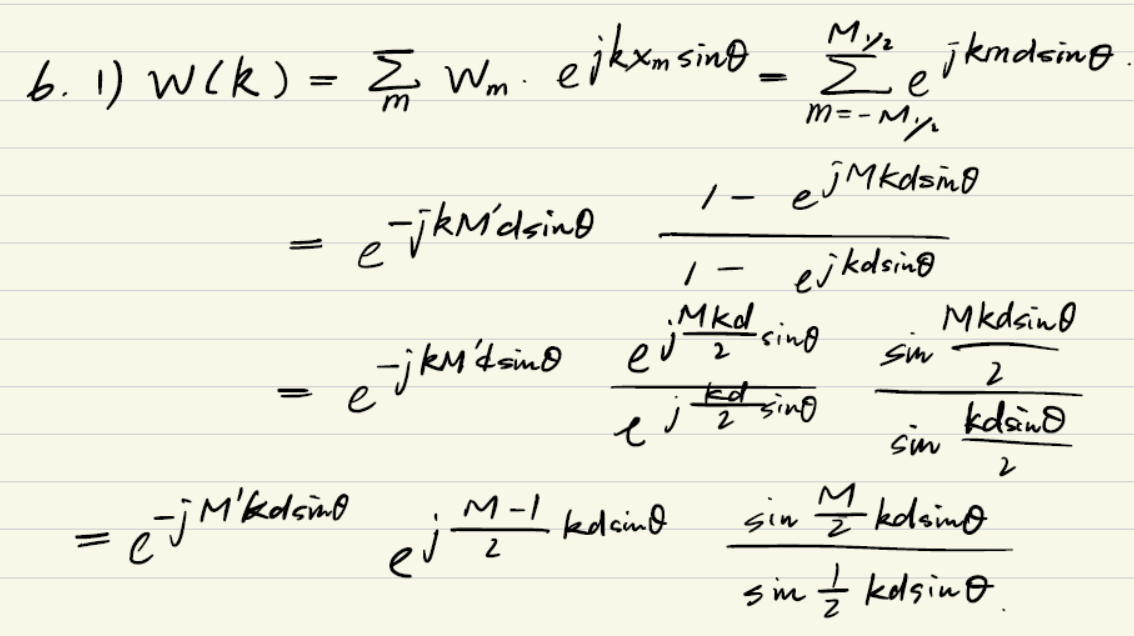 6. 1) W(k) = ∑_m W_m · e^{jkx_m sinθ} = ∑_{m=-M_{1/2}}^{M_{1/2}} e^{jkmdsinθ}.
= e^{-jkM'dsinθ} \frac{1 - e^{jMkdsinθ}}{1 - e^{jkdsinθ}}
= e^{-jkM'dsinθ} \frac{e^{j\frac{Mkd}{2}sinθ}}{e^{j\frac{kd}{2}sinθ}} \frac{sin\frac{Mkdsinθ}{2}}{sin\frac{kdsinθ}{2}}
= e^{-jM'kdsinθ} e^{j\frac{M-1}{2}kdsinθ} \frac{sin\frac{M}{2}kdsinθ}{sin\frac{1}{2}kdsinθ}.